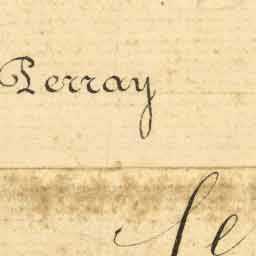 Perray
Se